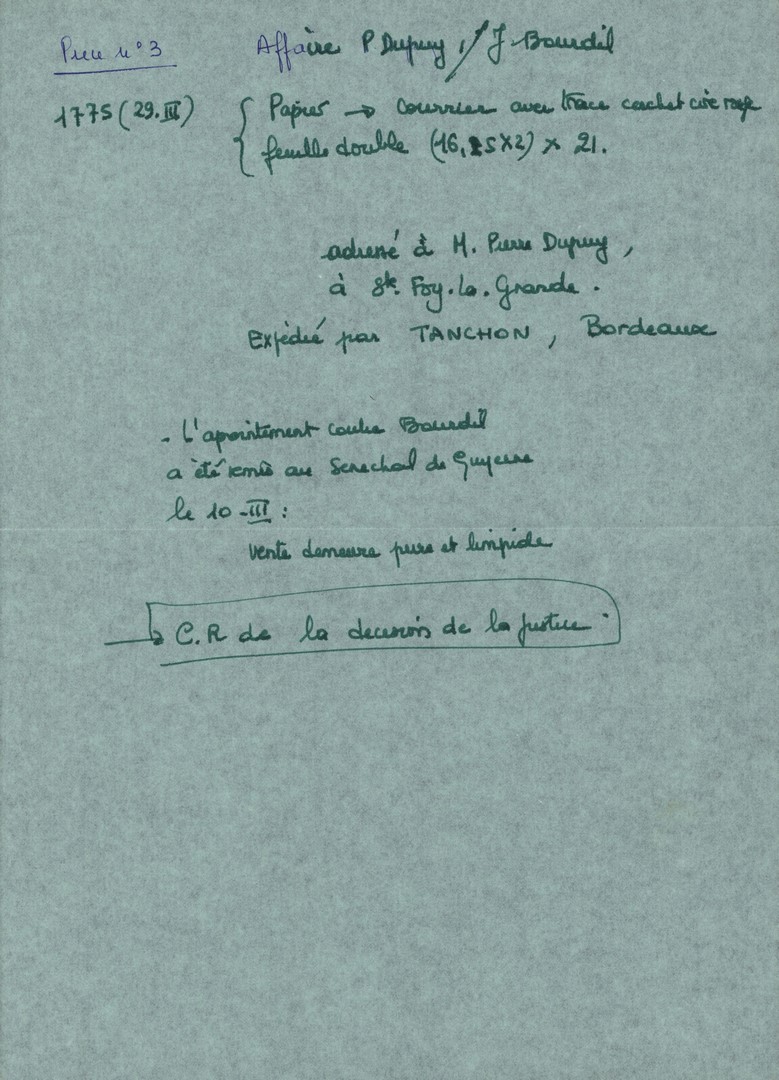 Pièce n° 3 Affaire P Dupuy / J. Bourdil
1775 (29. III) { Papier → courrier avec trace cachet cire rouge
feuille double (16,25 X 2) x 21.
adressé à M. Pierre Dupuy,
à Ste. Foy. la. Grande.
Expédié par TANCHON, Bordeaux
- L'apointement contre Bourdil
a été remis au Senechal de Guyenne
le 10 - III :
vente demeure pure et limpide
→ C.R de la decision de la justice.